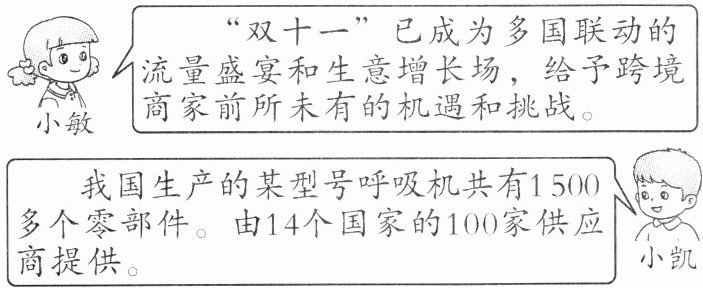 “双十一”已成为多国联动的
流量盛宴和生意增长场，给予跨境
商家前所未有的机遇和挑战。
小敏
我国生产的某型号呼吸机共有1500
多个零部件。由14个国家的100家供应
商提供。
小凯